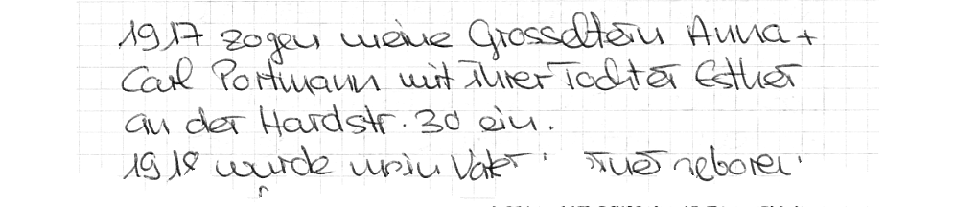 1917 zogen meine Grosseltern Anna +
Carl Portmann mit ihrer Tochter Esther
an der Hardstr. 30 ein.
1918 wurde mein Vater